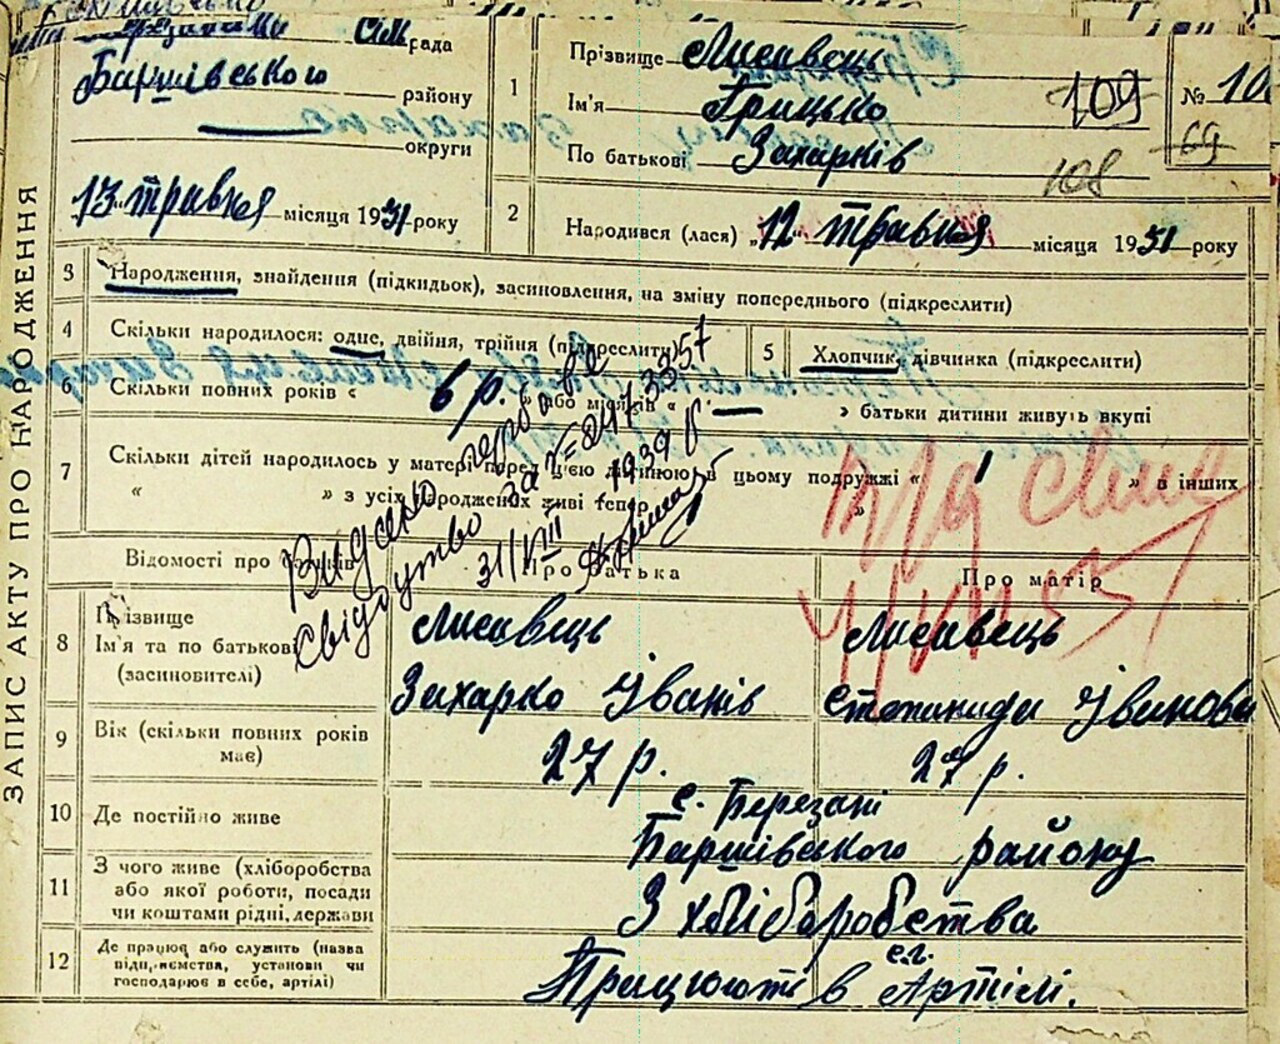 ЗАПИС АКТУ ПРО НАРОДЖЕННЯ
сільрада
Баришівського району
округи
13 травня місяця 1931 року
1
Прізвище Лисавець
Ім'я Грицько
По батькові Захарків
109
108
№ 10
69
2
Народився (лася) „12“ травня місяця 1931 року
3 Народження, знайдення (підкидьок), засиновлення, на зміну попереднього (підкреслити)
4 Скільки народилося: одне, двійня, трійня (підкреслити)
5 Хлопчик, дівчинка (підкреслити)
6 Скільки повних років « 6 р. » або місяців « — » батьки дитини живуть вкупі
7 Скільки дітей народилось у матері перед ц'єю дитиною в цьому подружжі « 1 » в інших
« » з усіх народжених живі тепер »
Видано гербове
свідоцтво за №=2473357
31/VIII 1939 р
Відомості про батьків
Про батька
Про матір
8 Прізвище
Ім'я та по батькові
(засиновителі)
Лисавець
Захарко Іванів
Лисавець
Степанида Іванова
9 Вік (скільки повних років має)
27 р.
27 р.
10 Де постійно живе
с. Березані
Баришівського району
11 З чого живе (хліборобства
або якої роботи, посади
чи коштами рідні, держави
З хліборобства
12 Де працює або служить (назва
підприємства, установи чи
господарює в себе, артілі)
Працюют в с.г. Артілі.